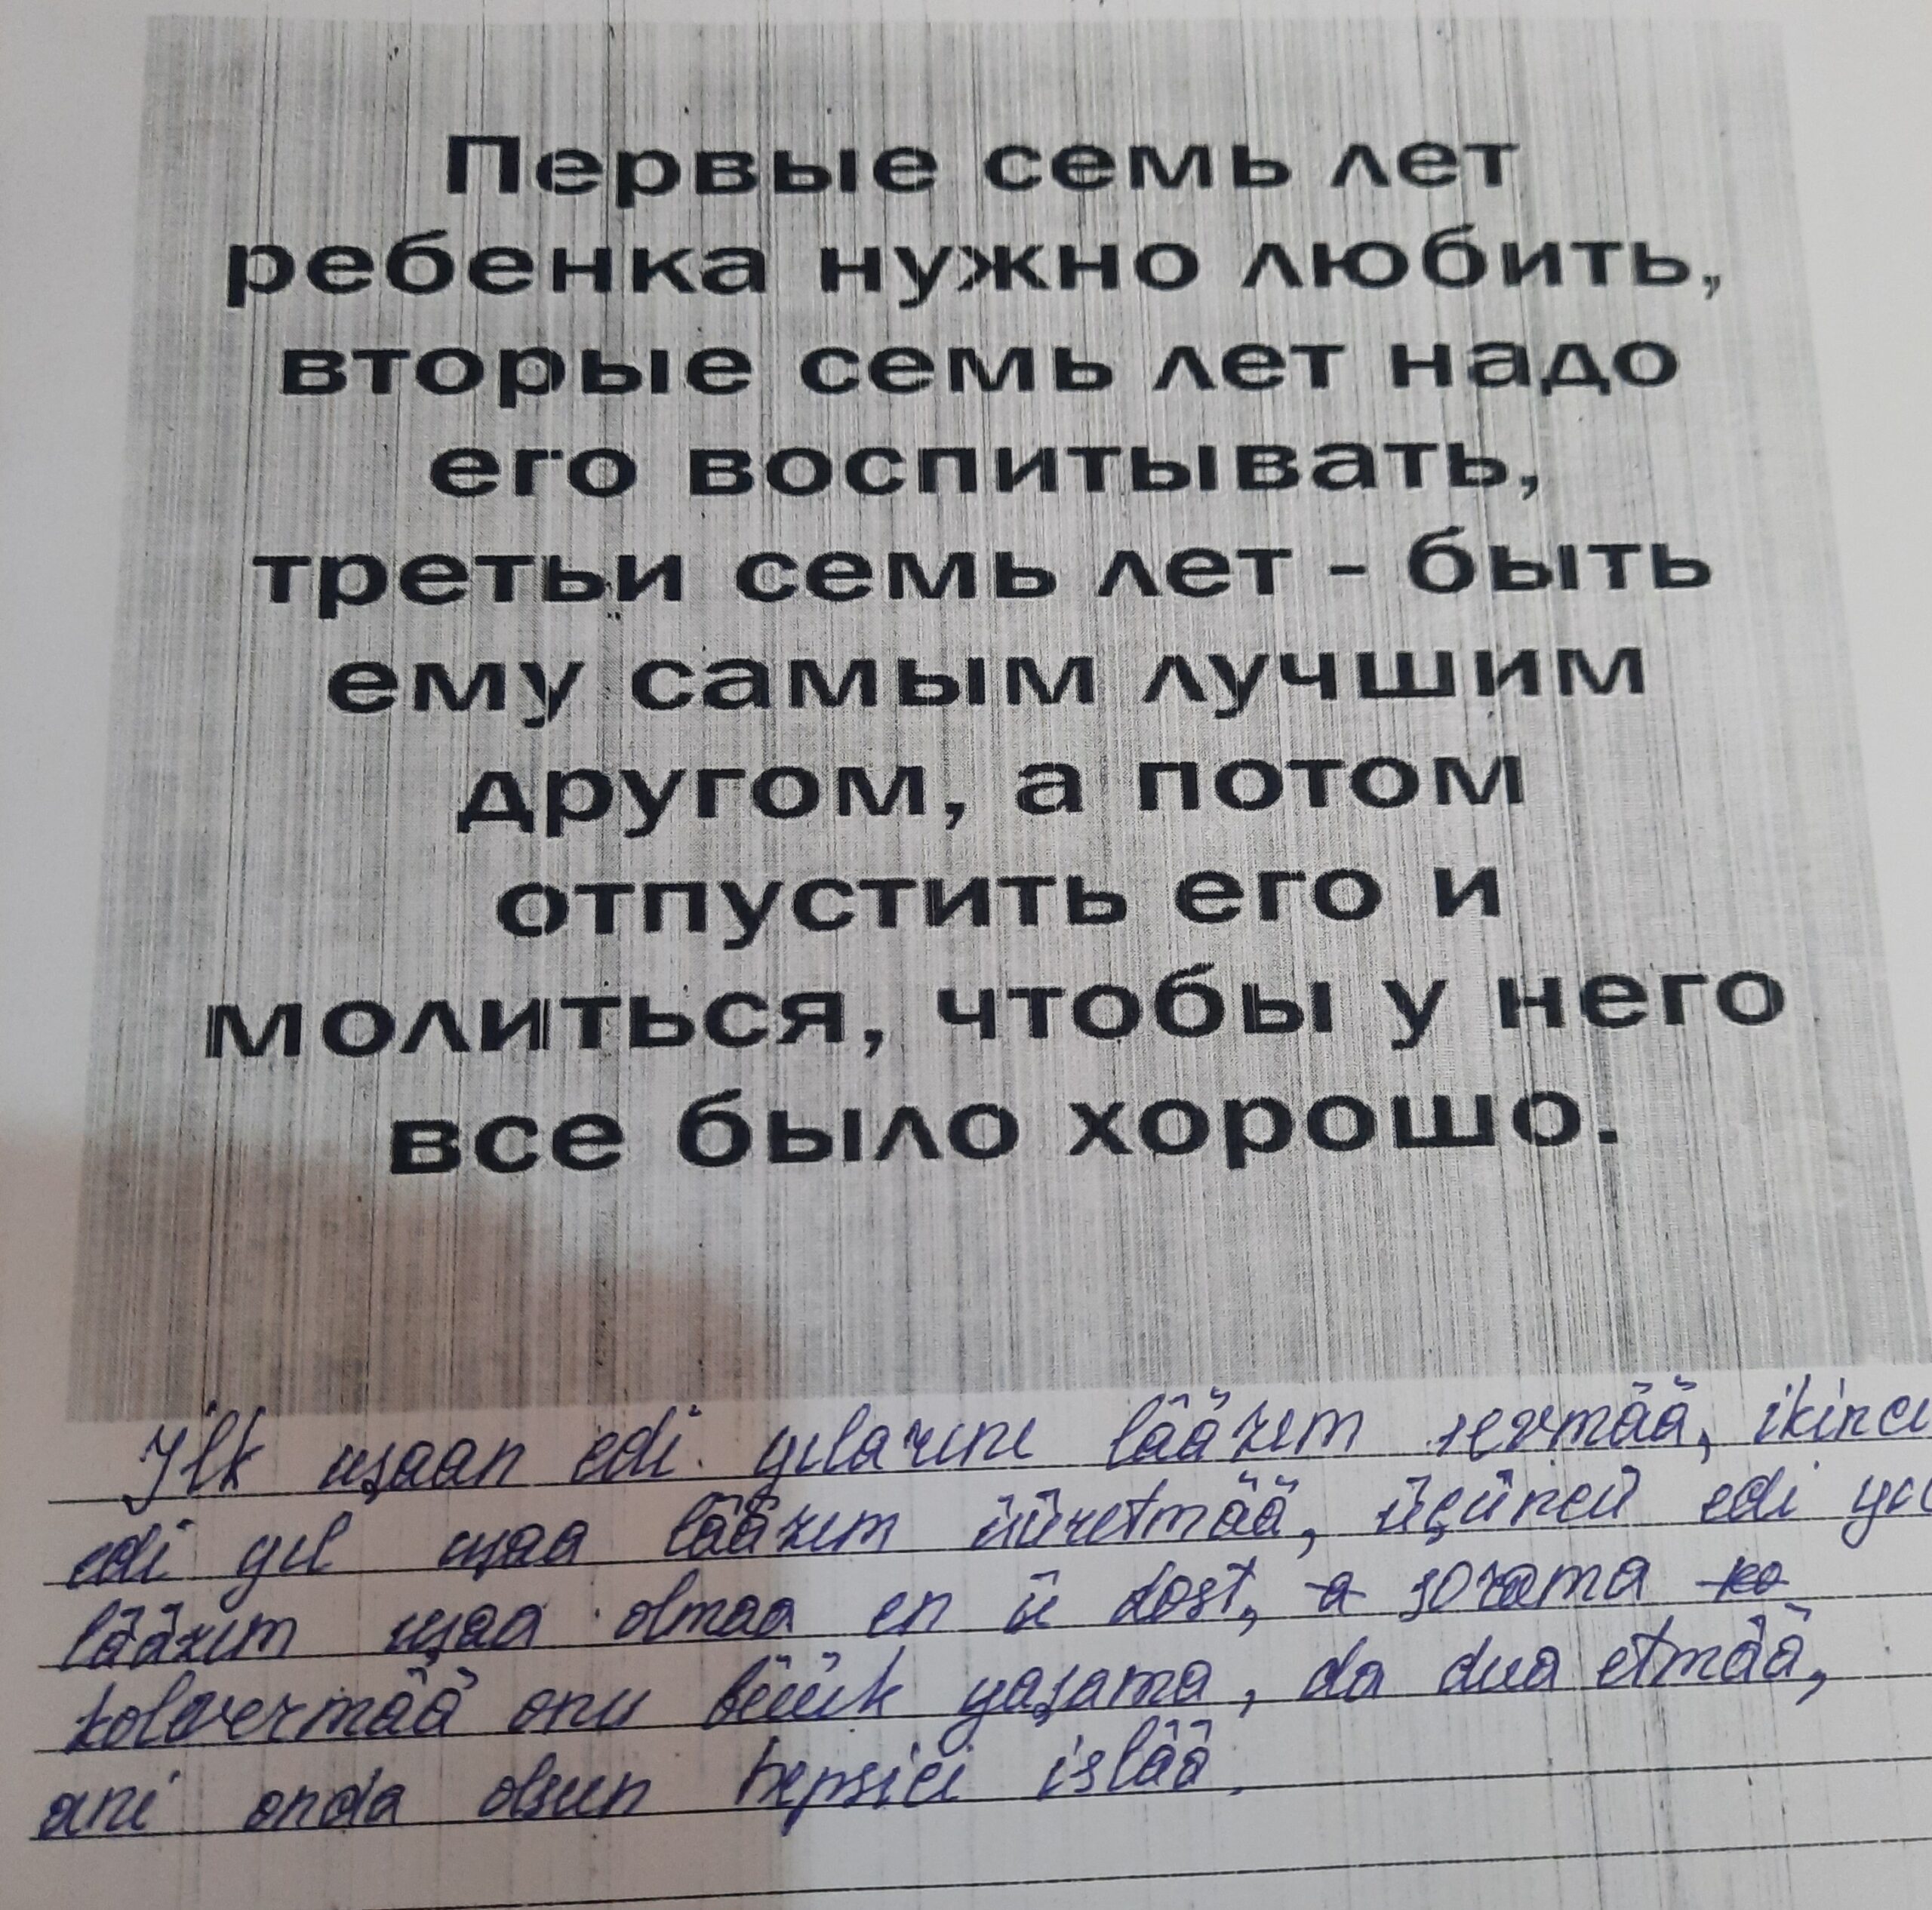 Первые семь лет
ребенка нужно любить,
вторые семь лет надо
его воспитывать,
третьи семь лет - быть
ему самым лучшим
другом, а потом
отпустить его и
молиться, чтобы у него
все было хорошо.
İlk uşaan edi yılarını lääzım sevmää, ikinci
edi yıl uşaa lääzım üüretmää, üçüncü edi
lääzım uşaa olmaa en ii dost, a sorama
kolvermää onu büük yaşama, da dua etmää,
ani onda olsun hepsici islää.